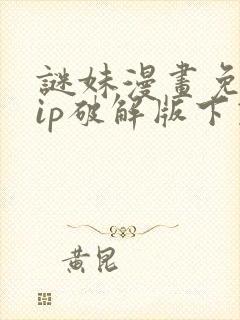 謎妹漫畫免
ip破解版下
黃昆